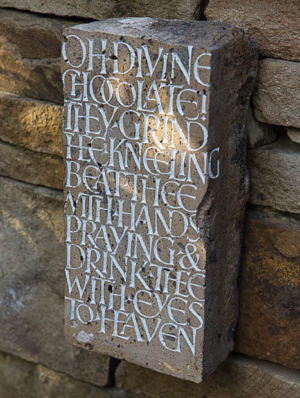 OH DIVINE
CHOCOLATE!
THEY GRIND
THEE KNEELING
BEAT THEE
WITH HANDS
PRAYING &
DRINK THEE
WITH EYES
TO HEAVEN